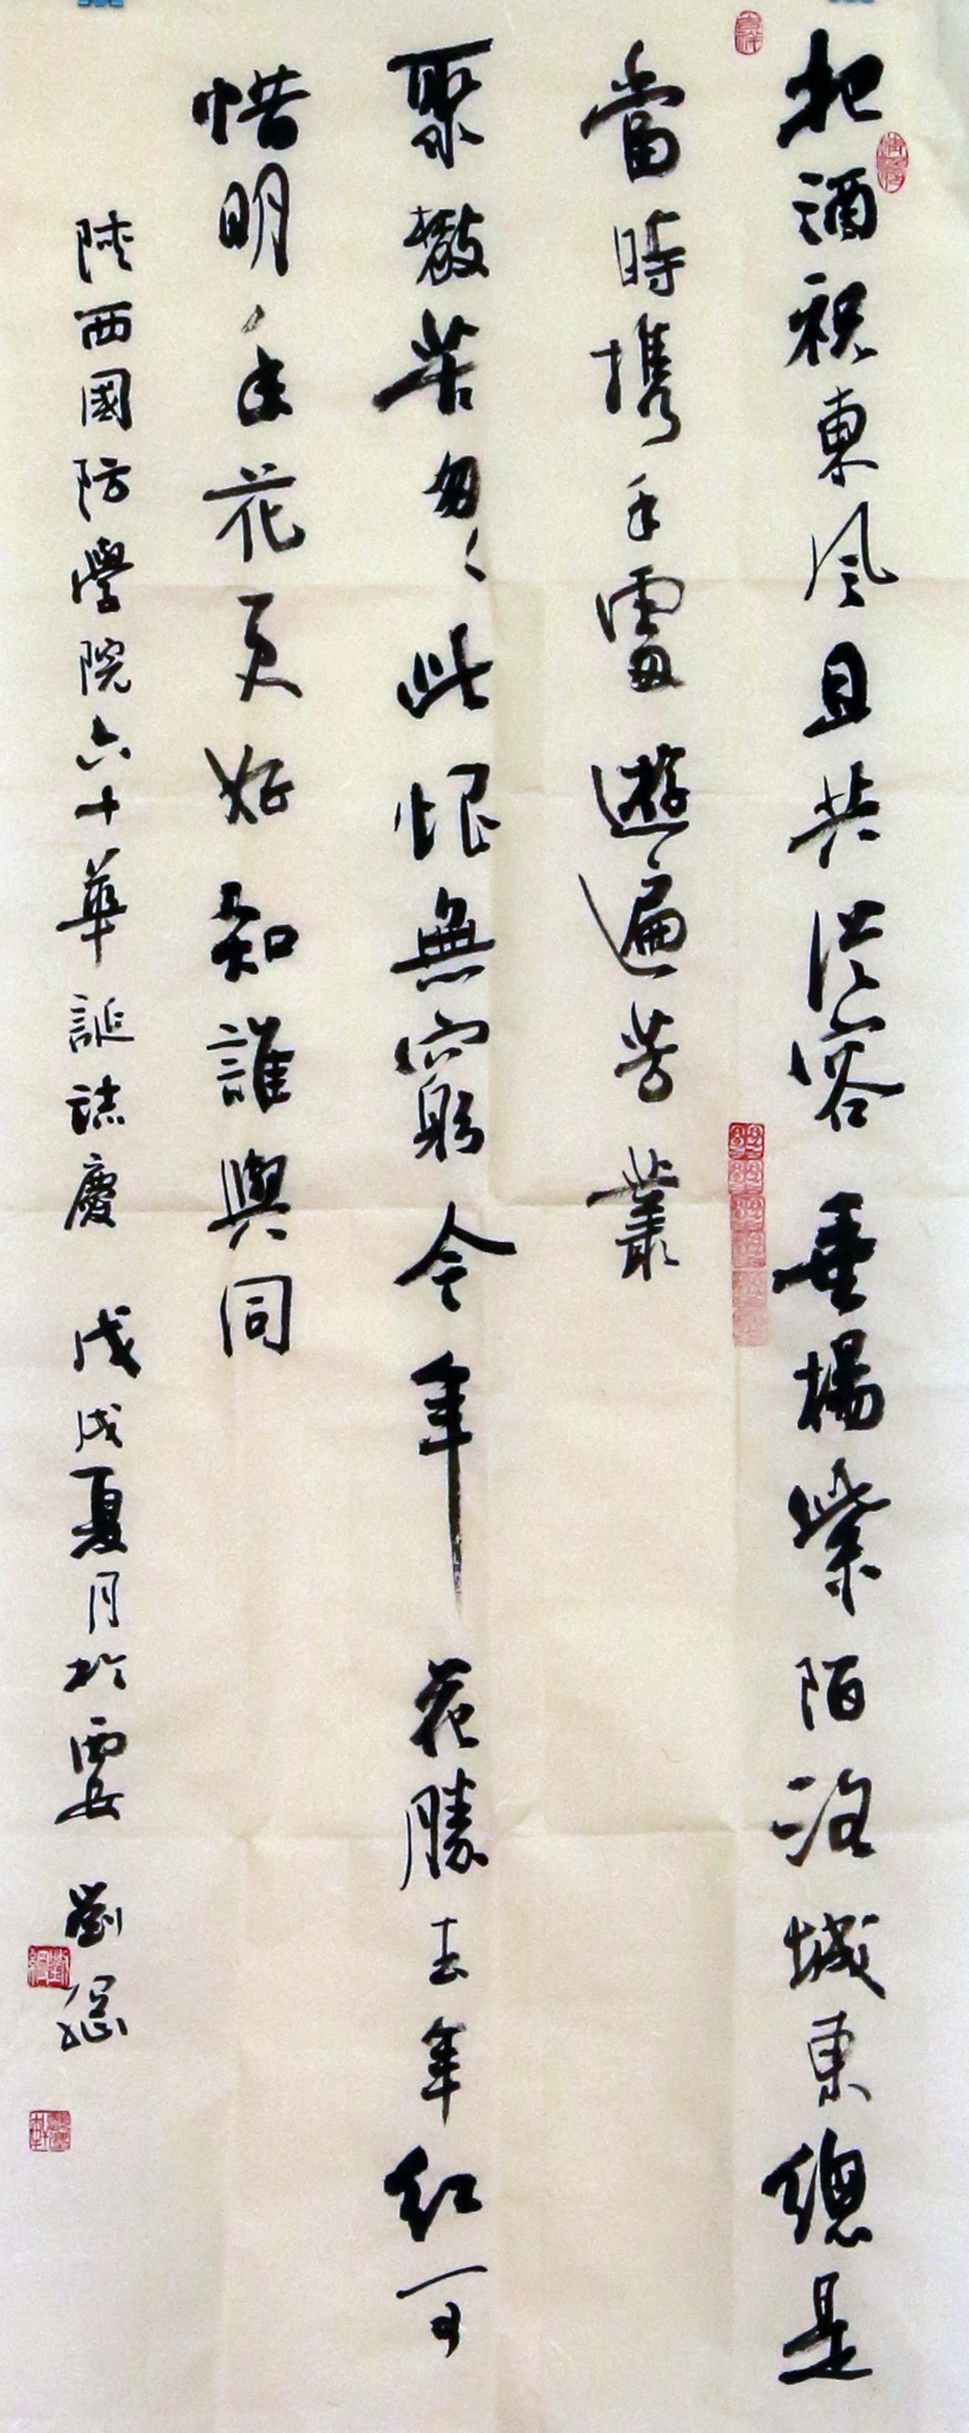 把酒祝東風且共從容垂楊紫陌洛城東總是
當時攜手處遊遍芳叢
聚散苦匆〻此恨無窮今年花勝去年紅可
惜明年花更好知誰與同
陝西國防學院六十華誕誌慶 戊戌夏月於西安 劉